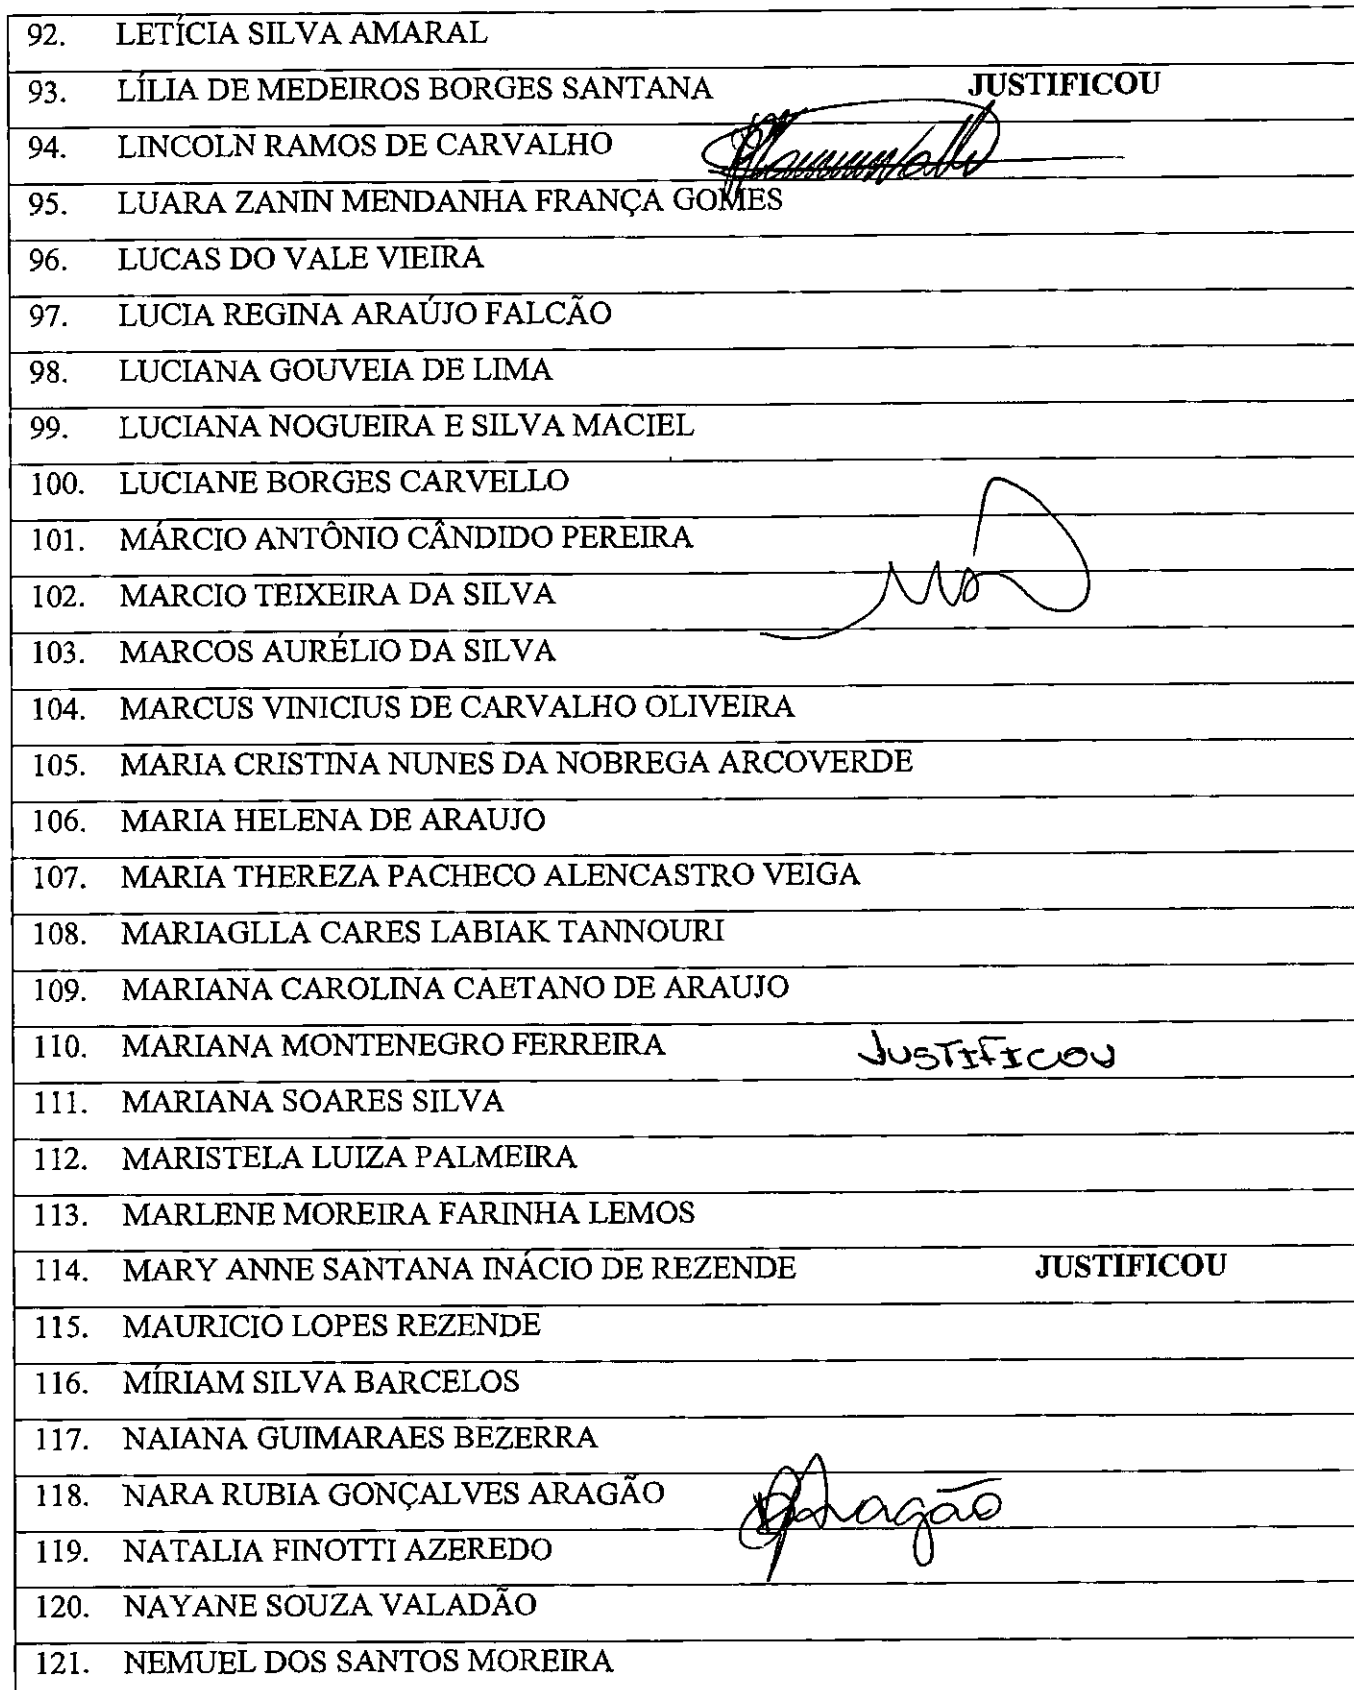 92. LETÍCIA SILVA AMARAL
93. LÍLIA DE MEDEIROS BORGES SANTANA JUSTIFICOU
94. LINCOLN RAMOS DE CARVALHO
95. LUARA ZANIN MENDANHA FRANÇA GOMES
96. LUCAS DO VALE VIEIRA
97. LUCIA REGINA ARAÚJO FALCÃO
98. LUCIANA GOUVEIA DE LIMA
99. LUCIANA NOGUEIRA E SILVA MACIEL
100. LUCIANE BORGES CARVELLO
101. MÁRCIO ANTÔNIO CÂNDIDO PEREIRA
102. MARCIO TEIXEIRA DA SILVA
103. MARCOS AURÉLIO DA SILVA
104. MARCUS VINICIUS DE CARVALHO OLIVEIRA
105. MARIA CRISTINA NUNES DA NOBREGA ARCOVERDE
106. MARIA HELENA DE ARAUJO
107. MARIA THEREZA PACHECO ALENCASTRO VEIGA
108. MARIAGLLA CARES LABIAK TANNOURI
109. MARIANA CAROLINA CAETANO DE ARAUJO
110. MARIANA MONTENEGRO FERREIRA JUSTIFICOU
111. MARIANA SOARES SILVA
112. MARISTELA LUIZA PALMEIRA
113. MARLENE MOREIRA FARINHA LEMOS
114. MARY ANNE SANTANA INÁCIO DE REZENDE JUSTIFICOU
115. MAURICIO LOPES REZENDE
116. MÍRIAM SILVA BARCELOS
117. NAIANA GUIMARAES BEZERRA
118. NARA RUBIA GONÇALVES ARAGÃO Aragão
119. NATALIA FINOTTI AZEREDO
120. NAYANE SOUZA VALADÃO
121. NEMUEL DOS SANTOS MOREIRA